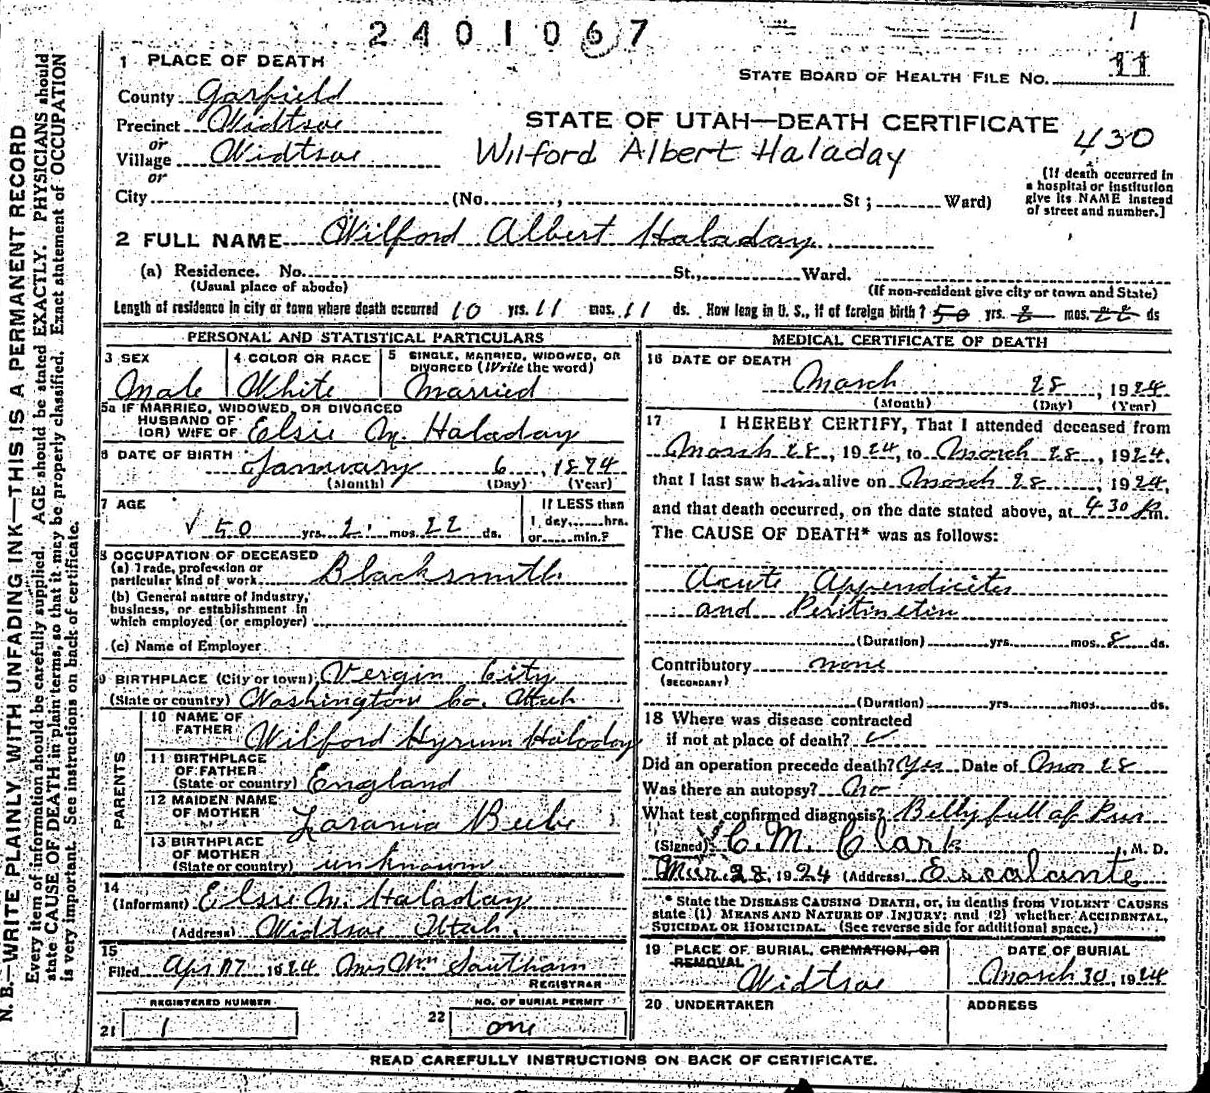 2401067
1
11
1 PLACE OF DEATH
STATE BOARD OF HEALTH FILE No.
County Garfield
Precinct Widtsoe
STATE OF UTAH—DEATH CERTIFICATE
or
Village Widtsoe
Wilford Albert Haladay
430
or
City (No. , St ; Ward)
(If death occurred in
a hospital or institution
give its NAME instead
of street and number.]
2 FULL NAME Wilford Albert Haladay
(a) Residence. No. St., Ward.
(Usual place of abode)
(If non-resident give city or town and State)
Length of residence in city or town where death occurred 10 yrs. 11 mos. 11 ds. How long in U. S., if of foreign birth? 50 yrs. 2 mos. 22 ds
PERSONAL AND STATISTICAL PARTICULARS
3 SEX
Male
4 COLOR OR RACE
White
5 SINGLE, MARRIED, WIDOWED, OR
DIVORCED (Write the word)
Married
5a IF MARRIED, WIDOWED, OR DIVORCED
HUSBAND OF
(OR) WIFE OF Elsie M. Haladay
6 DATE OF BIRTH
January 6, 1874
(Month) (Day) (Year)
7 AGE
50 yrs. 2 mos. 22 ds.
If LESS than
1 day, hrs.
or min.?
8 OCCUPATION OF DECEASED
(a) Trade, profession or
particular kind of work Blacksmith
(b) General nature of industry,
business, or establishment in
which employed (or employer)
(c) Name of Employer
9 BIRTHPLACE (City or town) Vergin City
(State or country) Washington Co. Utah
PARENTS
10 NAME OF
FATHER Wilford Hyrum Haladay
11 BIRTHPLACE
OF FATHER
(State or country) England
12 MAIDEN NAME
OF MOTHER
13 BIRTHPLACE
OF MOTHER
(State or country) unknown
14
(Informant) Elsie M. Haladay
(Address) Widtsoe Utah.
15
Filed Apr 17 1924 Mrs Wm Southam
REGISTRAR
REGISTERED NUMBER
21 1
NO. OF BURIAL PERMIT
22 one
MEDICAL CERTIFICATE OF DEATH
16 DATE OF DEATH
March 28, 1924
(Month) (Day) (Year)
17 I HEREBY CERTIFY, That I attended deceased from
March 28, 1924, to March 28, 1924,
that I last saw him alive on March 28, 1924,
and that death occurred, on the date stated above, at 430 Pm.
The CAUSE OF DEATH* was as follows:
Acute Appendicites
and
(Duration) yrs. mos. 8 ds.
Contributory none
(SECONDARY)
(Duration) yrs. mos. ds.
18 Where was disease contracted
if not at place of death?
Did an operation precede death? Yes Date of Mar 28
Was there an autopsy? No
What test confirmed diagnosis? Belly full of Pus
(Signed) C. M. Clark, M. D.
Mar. 28, 1924 (Address) Escalante
* State the DISEASE CAUSING DEATH, or, in deaths from VIOLENT CAUSES
state (1) MEANS AND NATURE OF INJURY; and (2) whether ACCIDENTAL,
SUICIDAL OR HOMICIDAL. (See reverse side for additional space.)
19 PLACE OF BURIAL, CREMATION, OR
REMOVAL
Widtsoe
DATE OF BURIAL
March 30, 1924
20 UNDERTAKER
ADDRESS
READ CAREFULLY INSTRUCTIONS ON BACK OF CERTIFICATE.
N. B.—WRITE PLAINLY, WITH UNFADING INK—THIS IS A PERMANENT RECORD
Every item of information should be carefully supplied. AGE should be stated EXACTLY. PHYSICIANS should
state CAUSE OF DEATH in plain terms, so that it may be properly classified. Exact statement of OCCUPATION
is very important. See instructions on back of certificate.